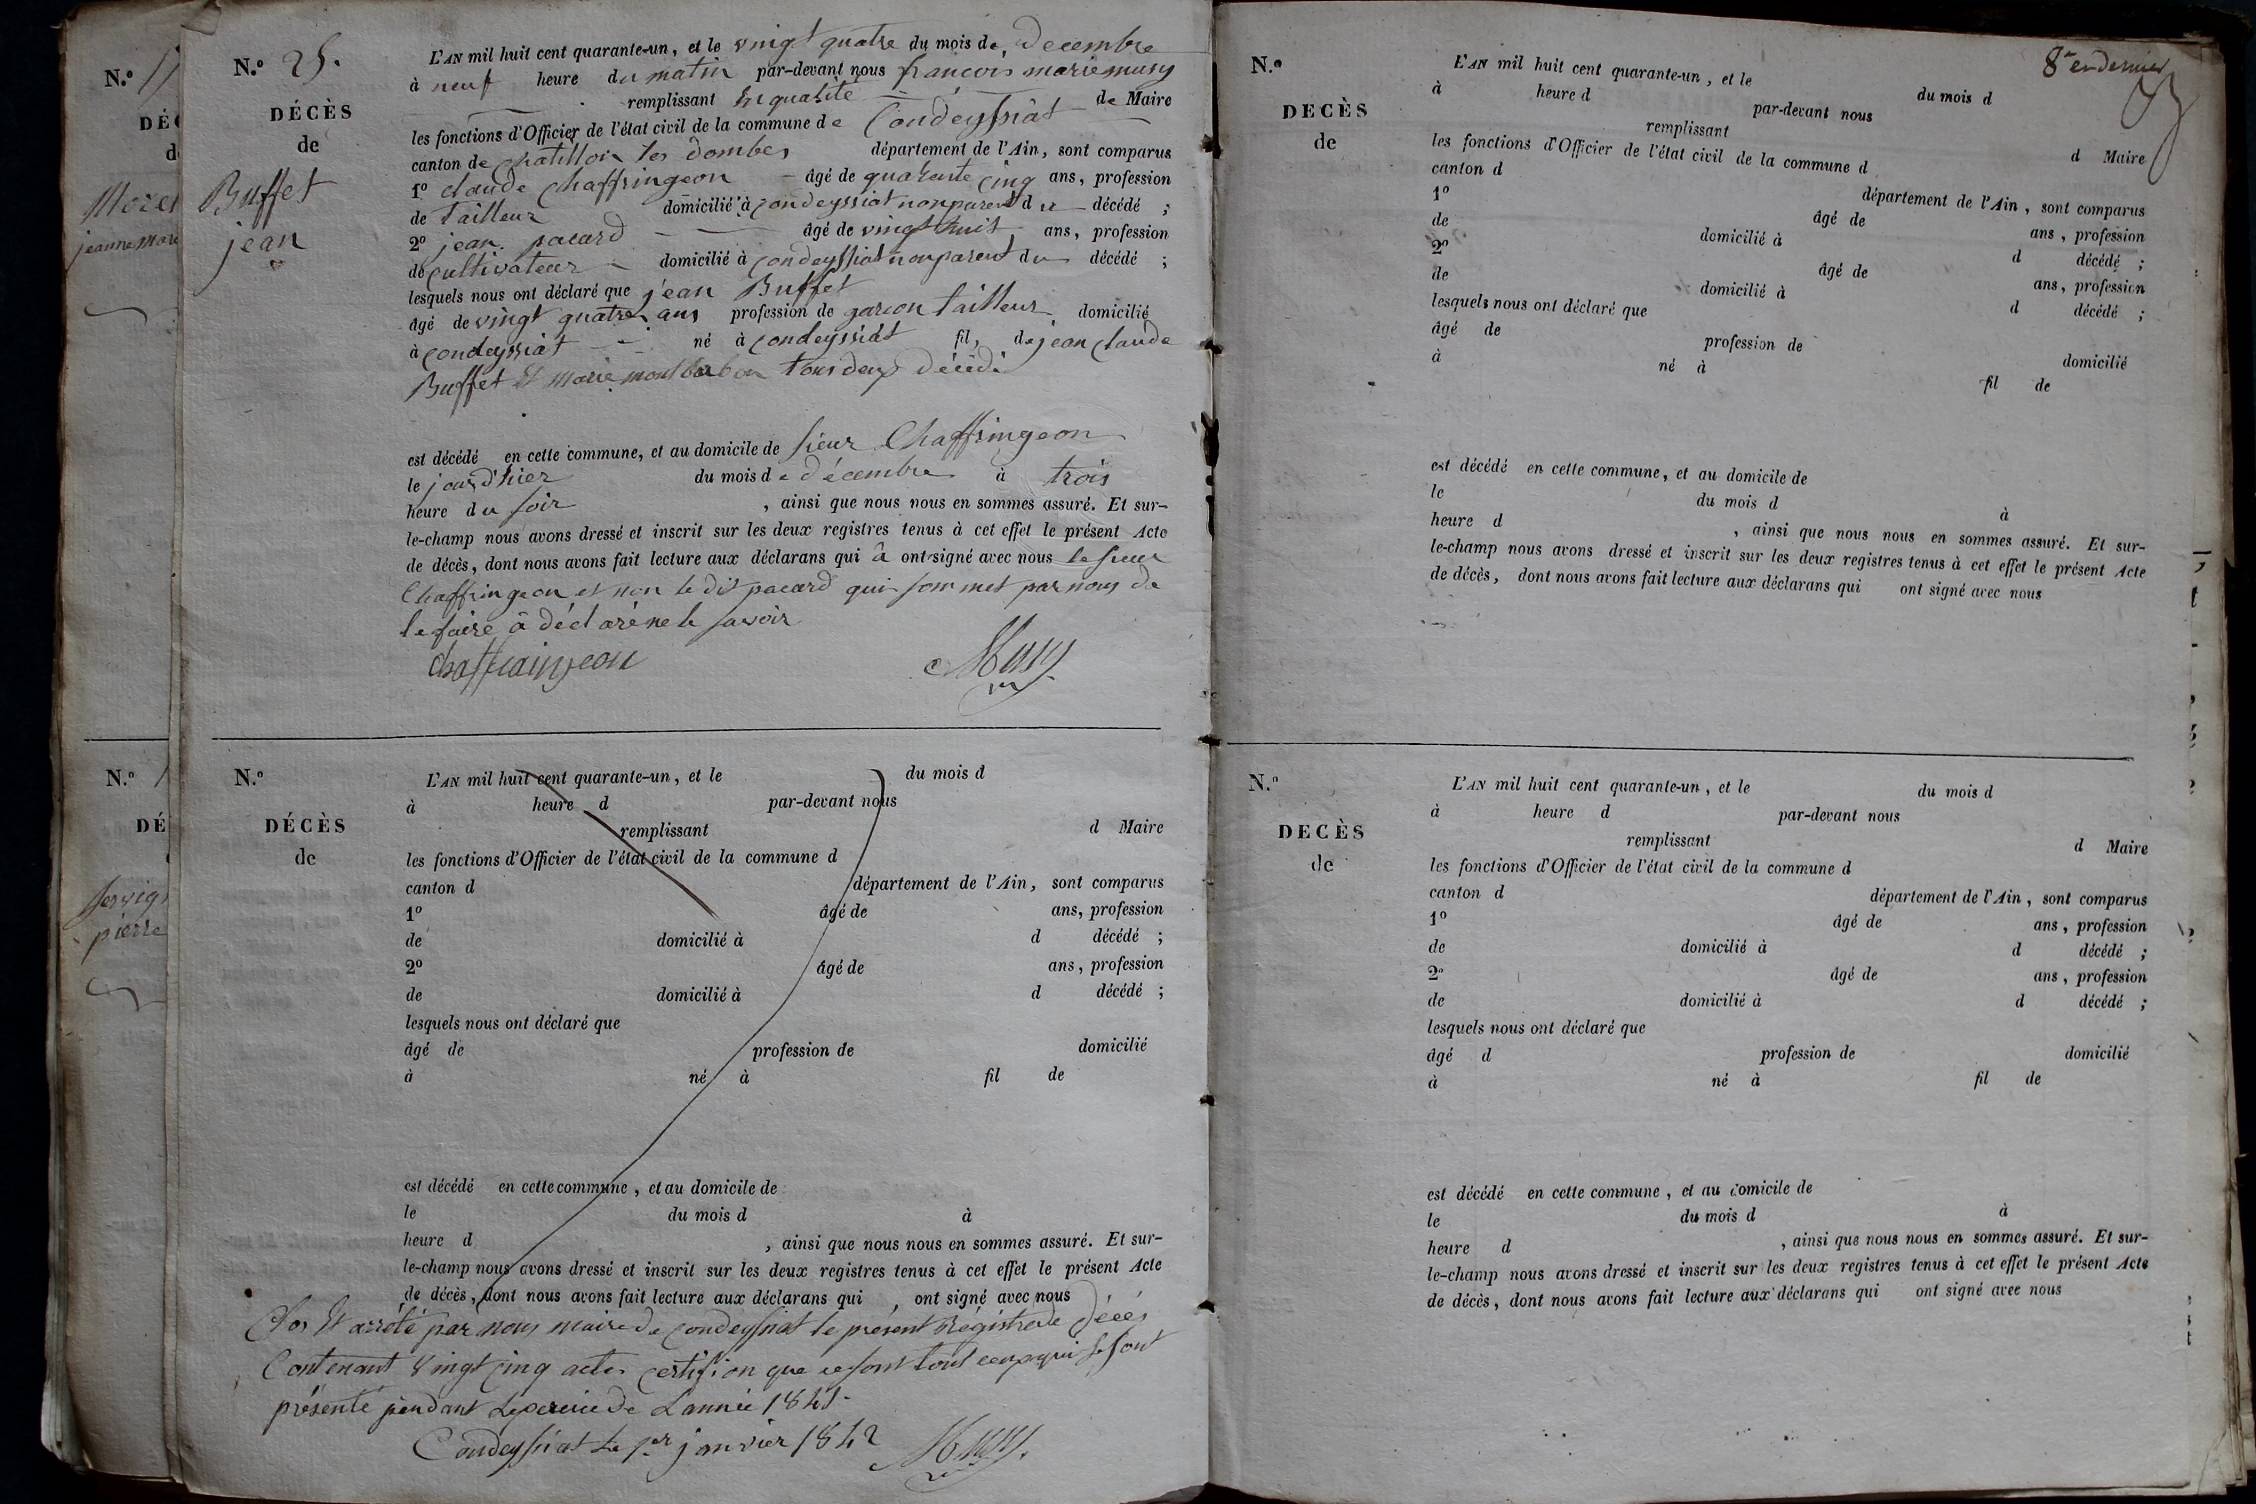 N.º 17
DÉC
d
Morel
jeanne Marie
N.º 1
DÉ
pierre
N.º 25.
DÉCÈS
de
Buffet
jean
L'AN mil huit cent quarante-un, et le vingt quatre du mois de decembre
à neuf heure du matin par-devant nous françois marie musy
remplissant en qualité de Maire
les fonctions d'Officier de l'état civil de la commune de Condeyssiat
canton de chatillon les dombes département de l'Ain, sont comparus
1º claude Chaffringeon âgé de quarante cinq ans, profession
de tailleur domicilié à condeyssiat non parent du décédé ;
2º jean pacard âgé de vingt huit ans, profession
de cultivateur domicilié à condeyssiat non parent du décédé ;
lesquels nous ont déclaré que jean Buffet
âgé de vingt quatre ans profession de garcon tailleur domicilié
à condeyssiat né à condeyssiat fil, de jean claude
Buffet et marie montbarbon tous deux décédé
est décédé en cette commune, et au domicile de sieur Chaffringeon
le jour d'hier du mois de décembre à trois
heure du soir , ainsi que nous nous en sommes assuré. Et sur-
le-champ nous avons dressé et inscrit sur les deux registres tenus à cet effet le présent Acte
de décès, dont nous avons fait lecture aux déclarans qui à ont signé avec nous le sieur
Chaffringeon et non le dit pacard qui sommet par nous de
le faire à déclaré ne le savoir
chaffraingeon Musy
N.º
DÉCÈS
de
L'AN mil huit cent quarante-un, et le du mois d
à heure d par-devant nous
remplissant d Maire
les fonctions d'Officier de l'état civil de la commune d
canton d département de l'Ain, sont comparus
1º âgé de ans, profession
de domicilié à d décédé ;
2º âgé de ans, profession
de domicilié à d décédé ;
lesquels nous ont déclaré que
âgé de profession de domicilié
à né à fil de
est décédé en cette commune, et au domicile de
le du mois d à
heure d , ainsi que nous nous en sommes assuré. Et sur-
le-champ nous avons dressé et inscrit sur les deux registres tenus à cet effet le présent Acte
de décès, dont nous avons fait lecture aux déclarans qui , ont signé avec nous
Clos Et arrêté par nous maire de condeyssiat le present Régistre de Décés
Contenant vingt cinq actes certifion que ce sont tout ceux qui se sont
présenté pendant Lexercice de Lannée 1841.
Condeyssiat le 1er janvier 1842 Musy
8e et dernier
N.º
DECÈS
de
L'AN mil huit cent quarante-un, et le du mois d
à heure d par-devant nous
remplissant d Maire
les fonctions d'Officier de l'état civil de la commune d
canton d département de l'Ain, sont comparus
1º âgé de ans, profession
de domicilié à d décédé ;
2º âgé de ans, profession
de domicilié à d décédé ;
lesquels nous ont déclaré que
âgé de profession de domicilié
à né à fil de
est décédé en cette commune, et au domicile de
le du mois d à
heure d , ainsi que nous nous en sommes assuré. Et sur-
le-champ nous avons dressé et inscrit sur les deux registres tenus à cet effet le présent Acte
de décès, dont nous avons fait lecture aux déclarans qui ont signé avec nous
N.º
DECÈS
de
L'AN mil huit cent quarante-un, et le du mois d
à heure d par-devant nous
remplissant d Maire
les fonctions d'Officier de l'état civil de la commune d
canton d département de l'Ain, sont comparus
1º âgé de ans, profession
de domicilié à d décédé ;
2º âgé de ans, profession
de domicilié à d décédé ;
lesquels nous ont déclaré que
âgé d profession de domicilié
à né à fil de
est décédé en cette commune, et au domicile de
le du mois d à
heure d , ainsi que nous nous en sommes assuré. Et sur-
le-champ nous avons dressé et inscrit sur les deux registres tenus à cet effet le présent Acte
de décès, dont nous avons fait lecture aux déclarans qui ont signé avec nous